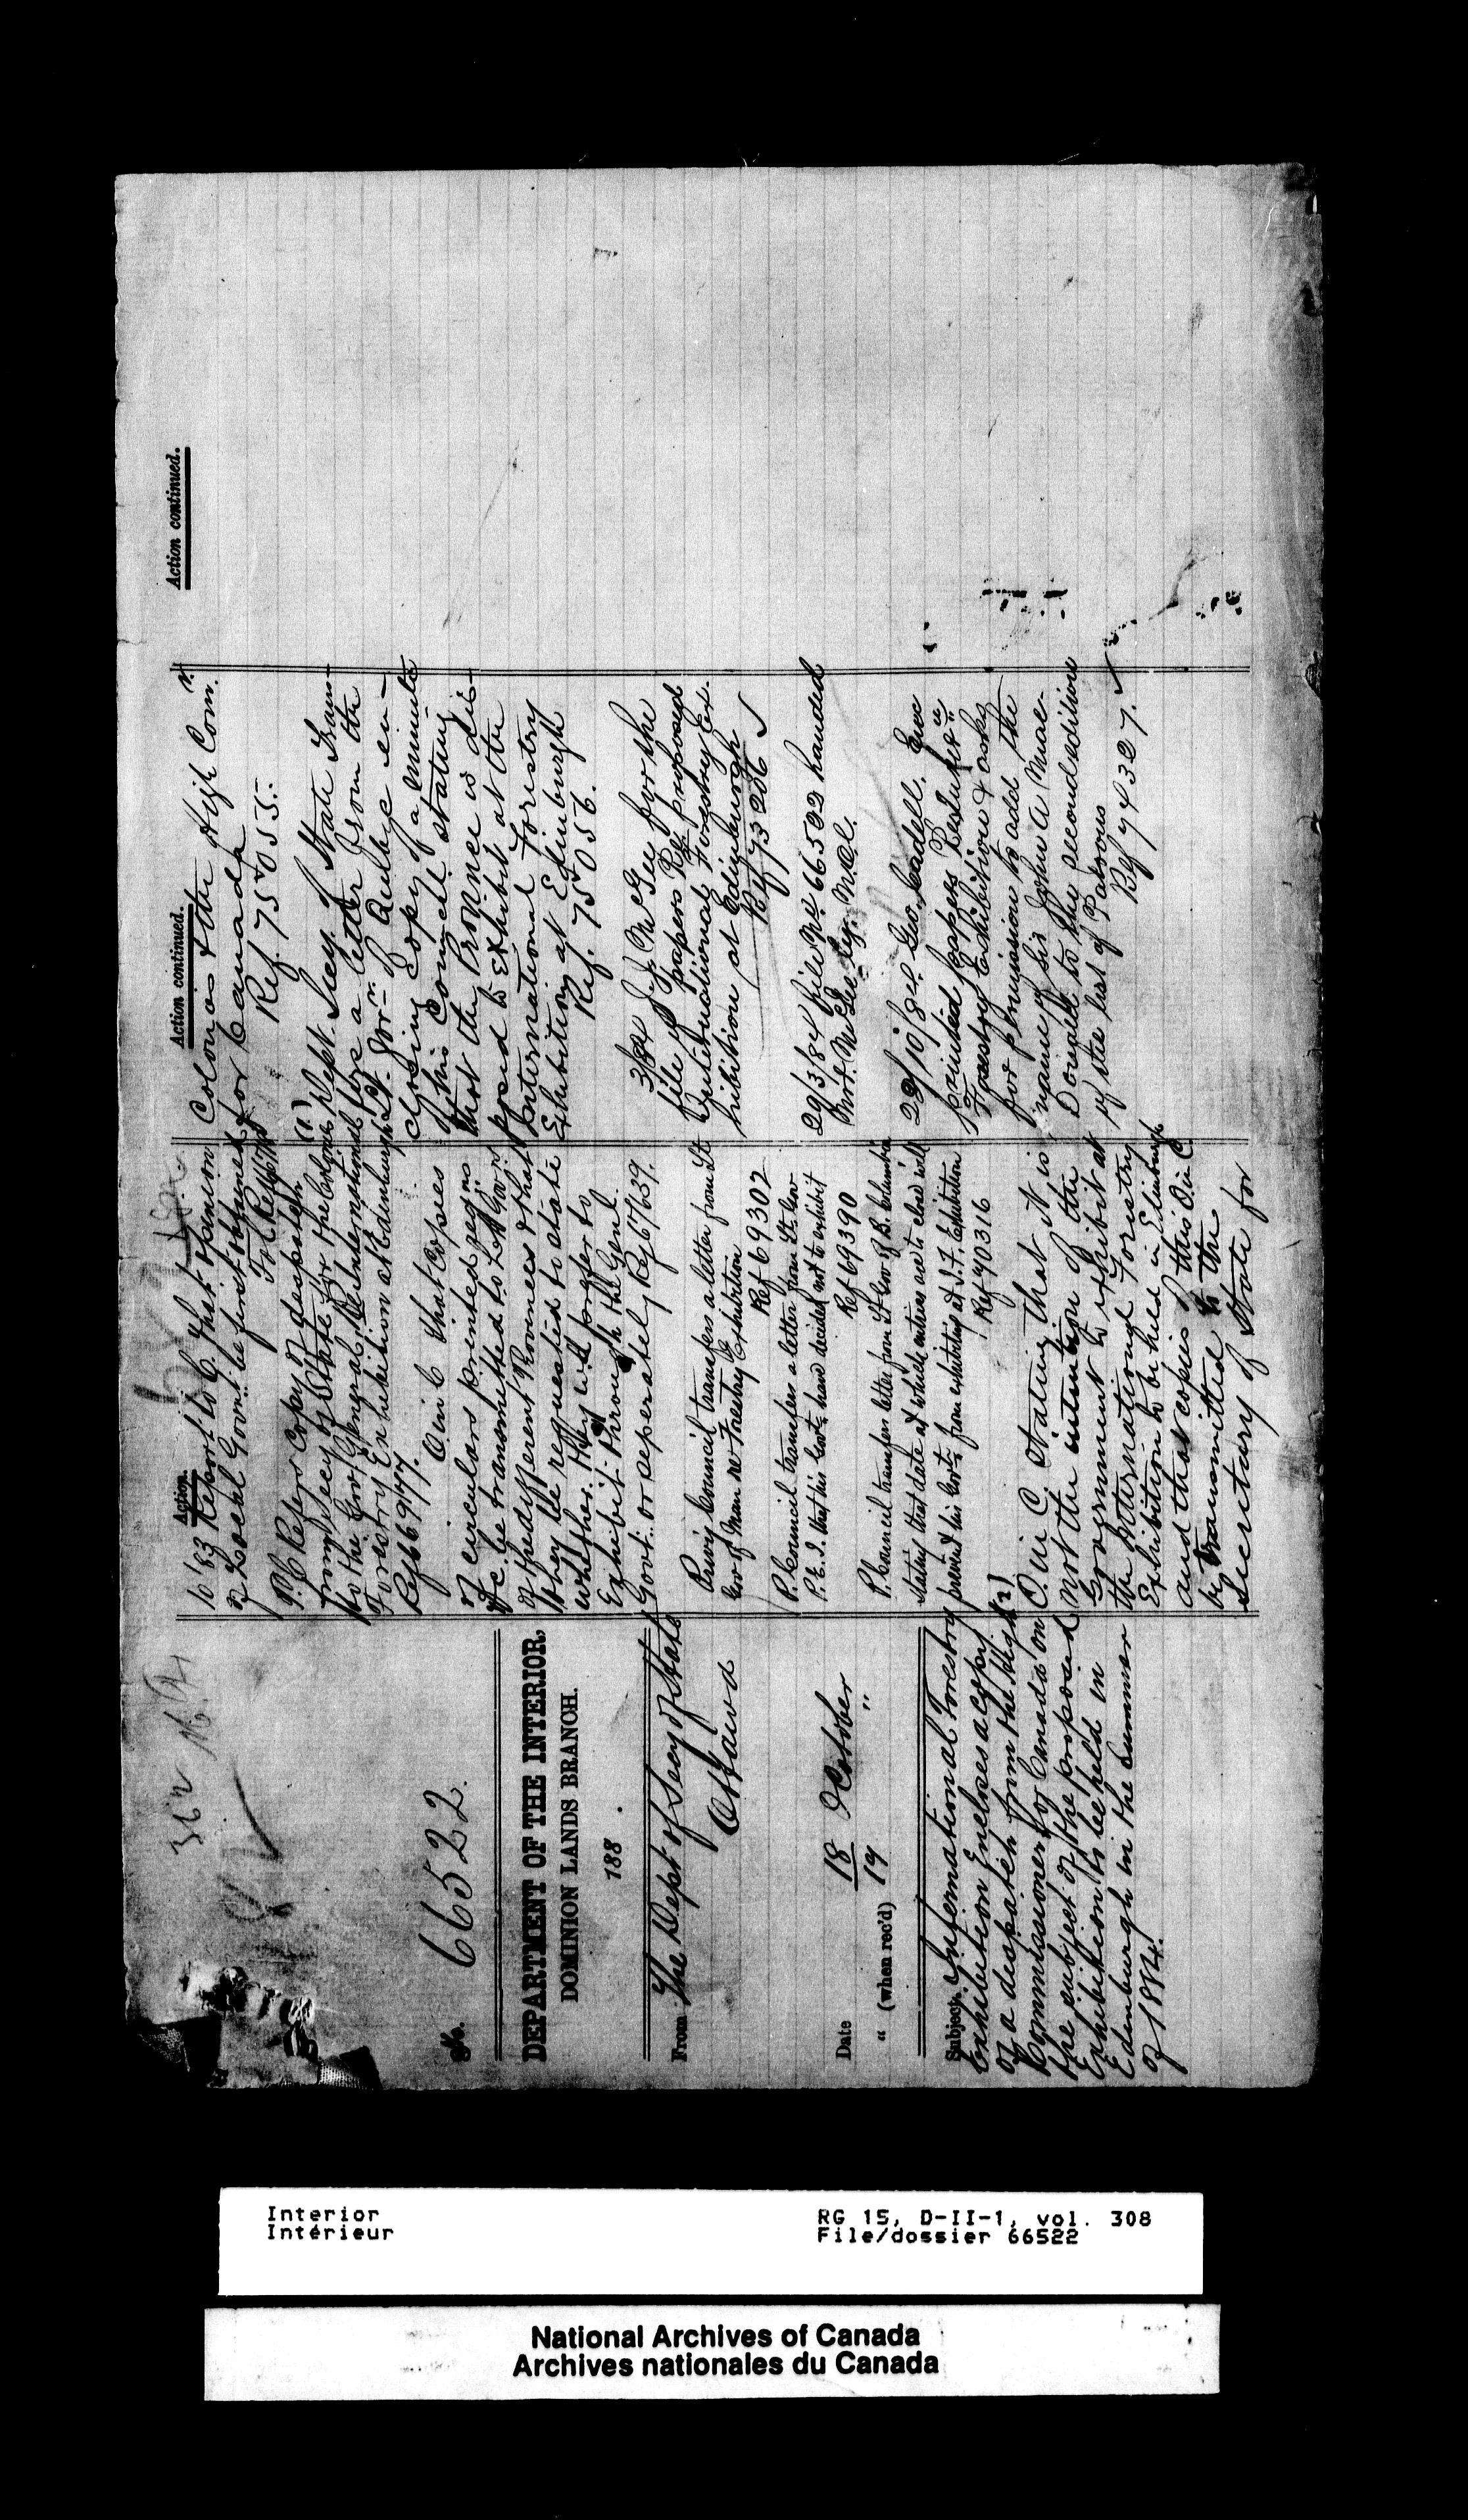 No. 66522.
DEPARTMENT OF THE INTERIOR,
DOMINION LANDS BRANCH.
188 .
From The Dept of Secy of State
Ottawa
Date 18 October
" (when rec'd) 19 "
Subject. International Forestry
Exhibition Encloses a copy
of a despatch from the High
Commissioner for Canada on
the subject of the proposed
Exhibition to be held in
Edinburgh in the Summer
of 1884.
Action.
Report to C. that opinion
of Local Govnt. be first obtained
P.C. Refer copy of despatch (1)
from Secy of State for the Colonies
to the Gov. General, re International
Forestry Exhibition at Edinburgh
Ref 66977.
O in C that copies
of circulars printed
&c be transmitted to Lt Govrs
of the different Provinces & that
they be requested to state
whether they will prefer to
Exhibit through the Genl.
Govt. or seperately Ref 67639.
Privy Council transfers a letter from Lt
Gov of Man re Forestry Exhibition
Ref 69302
P. Council transfers a letter from Lt. Gov
P.E.I. that his Govt. have decided not to exhibit
Ref 69390
P. Council transfers letter from Lt Gov of B. Columbia
stating that date at which entries are to close will
prevent his Govt. from exhibiting at I.F. Exhibition
Ref 70316
(2)
O. in C. stating that it is
not the intention of the
Government to exhibit at
the International Forestry
Exhibition to be held in Edinburgh
and that copies of this O. in C.
be transmitted to the
Secretary of State for
Action continued.
Colonies & the High Comr.
for Canada
Ref. 75055.
(1) Dept. Secy. of State Trans-
fers a letter from the
Lt. Gov. of Quebec en-
closing Copy of a minute
of his Council stating
that the Province is dis-
posed to Exhibit at the
International Forestry
Exhibition at Edinburgh
Ref. 75056.
3/84 J.J. McGee for the
file of papers Re proposed
International Forestry Ex-
hibition at Edinburgh
Ref 73206
29/3/84 File No. 66522 handed
Mr. McGee
22/10/84 Geo. Cadell. Enc
printed papers
Forestry Exhibition & asks
for permission to add the
name of Sir John A Mac-
Donald to the second edition
of the list of Patrons
Ref 74327.
Action continued.
Interior
Intérieur
RG 15, D-II-1, vol. 308
File/dossier 66522
National Archives of Canada
Archives nationales du Canada